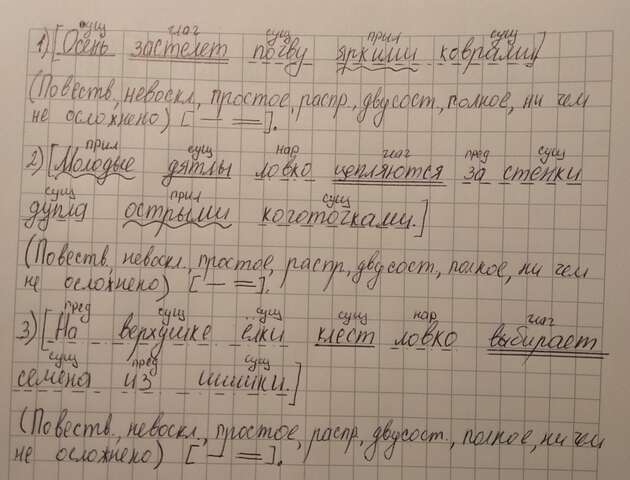 сущ глаг сущ прил сущ
1) [Осень застелет почву яркими коврами]
(Повеств, невоскл, простое, распр, двусост, полное, ни чем
не осложнено) [ — = ].
прил сущ нар глаг пред сущ
2) [Молодые дятлы ловко цепляются за стенки
сущ прил сущ
дупла острыми коготочками.]
(Повеств, невоскл., простое, распр, двусост, полное, ни чем
не осложнено) [ — = ].
пред сущ сущ сущ нар глаг
3) [На верхушке ёлки клест ловко выбирает
сущ пред сущ
семена из шишки.]
(Повеств., невоскл., простое, распр, двусост., полное, ни чем
не осложнено) [ — = ].